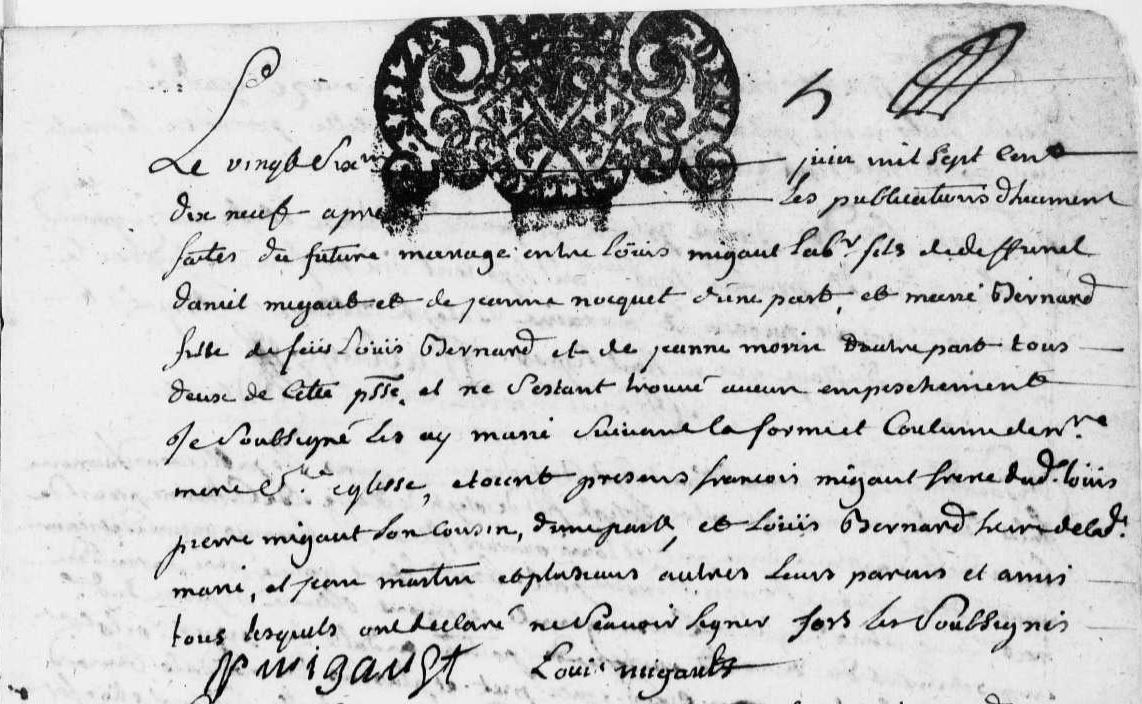 Le vingt sixm juin mil sept cent
dix neuf apres les publications duement
faites du future mariage entre Loüis migaut labr fils de deffunct
daniel migaut et de jeanne nocquet d'une part, et marie Bernard
fille de feüe Loüis Bernard et de jeanne morin d'autre part tous
deux de cette psse, et ne s'estant trouvé aucun empeschement
Je soubsigné les ay marié suivant la forme et coutume de nre
mere Ste eglisse, etoient presens francois migaut frere dud. loüis
pierre migaut son cousin, d'une part, et Loüis Bernard frere de lad.
marie, et jean martin et plusieurs autres leurs parens et amis
tous lesquels ont declaré ne scavoir signer fors les soubsignés
migault Louis migault